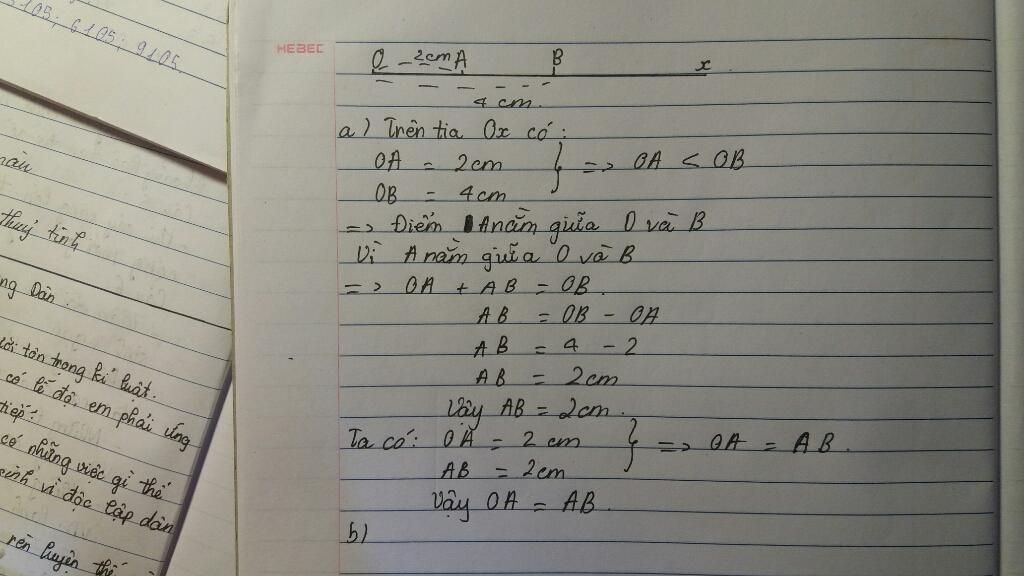 5105; 6105; 9105
HEBEC
O 2cm A B x
4 cm.
a) Trên tia Ox có:
OA = 2cm
OB = 4cm } => OA < OB
=> Điểm A nằm giữa O và B
Vì A nằm giữa O và B
=> OA + AB = OB.
AB = OB - OA
AB = 4 - 2
AB = 2cm
Vậy AB = 2cm.
Ta có: OA = 2 cm
AB = 2cm } => OA = AB.
Vậy OA = AB.
b)
thuỷ tinh
ng Dân.
tôn trọng kỉ luật.
có lễ độ, em phải ứng
tiếp?
có những việc gì thể
vì độc lập dân
rèn luyện thế